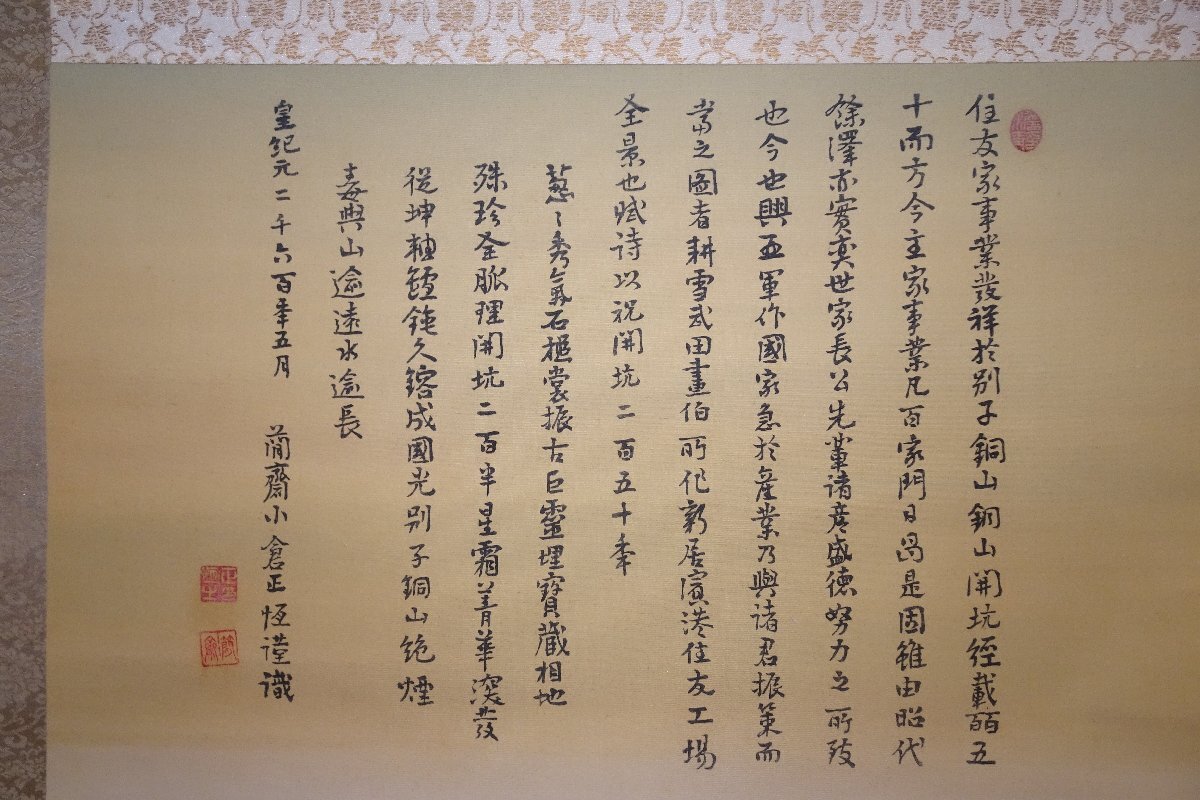 住友家事業發祥於別子銅山銅山開坑經載䨱五
十而方今主家事業凡百家門日昌是固雖由昭代
餘澤亦實奕世家長公先輩諸彥盛德努力之所致
也今也興亜軍作國家急於産業乃與諸君振策而
當之圖者耕雪武田畫伯所作新居濱港住友工場
全景也賦詩以祝開坑二百五十年
葱々秀氣石樞裳振古巨靈埋寶蔵相地
殊珍全脈理開坑二百半星霜菁華滾發
從坤軸鑪銕久鎔成國光別子銅山銫煙
毒與山逾遠水逾長
皇紀元二千六百年五月 簡齋小倉正恆謹識